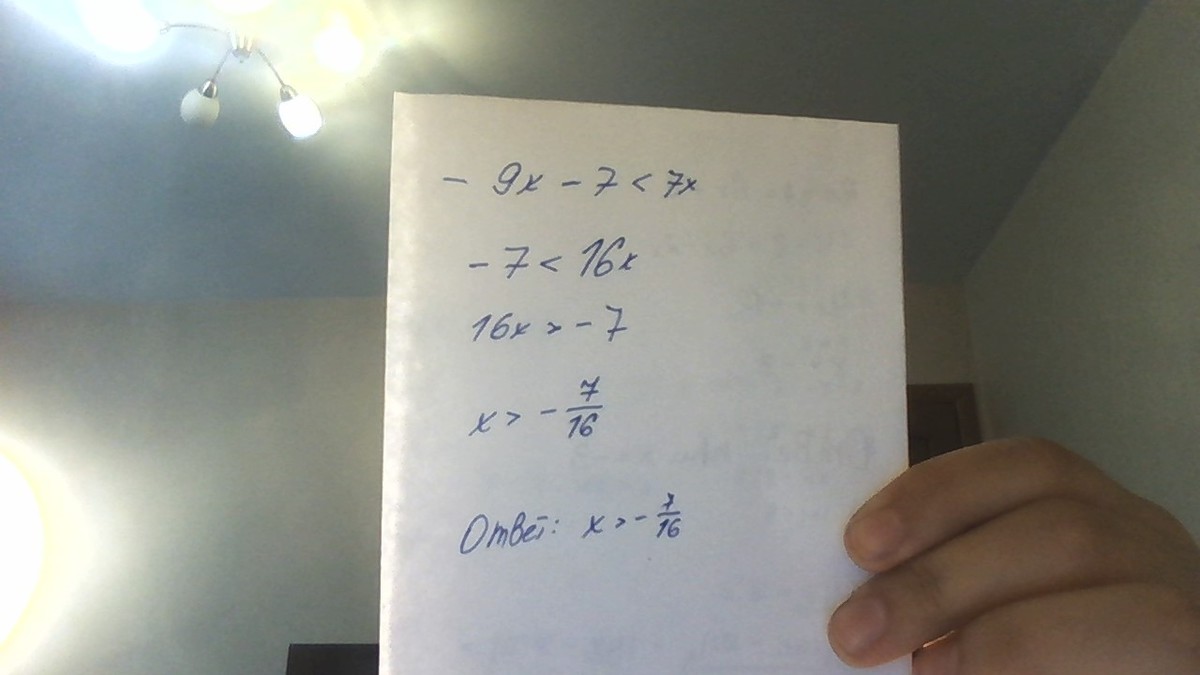 - 9x - 7 < 7x
- 7 < 16x
16x > - 7
x > - 7/16
Ответ: x > - 7/16